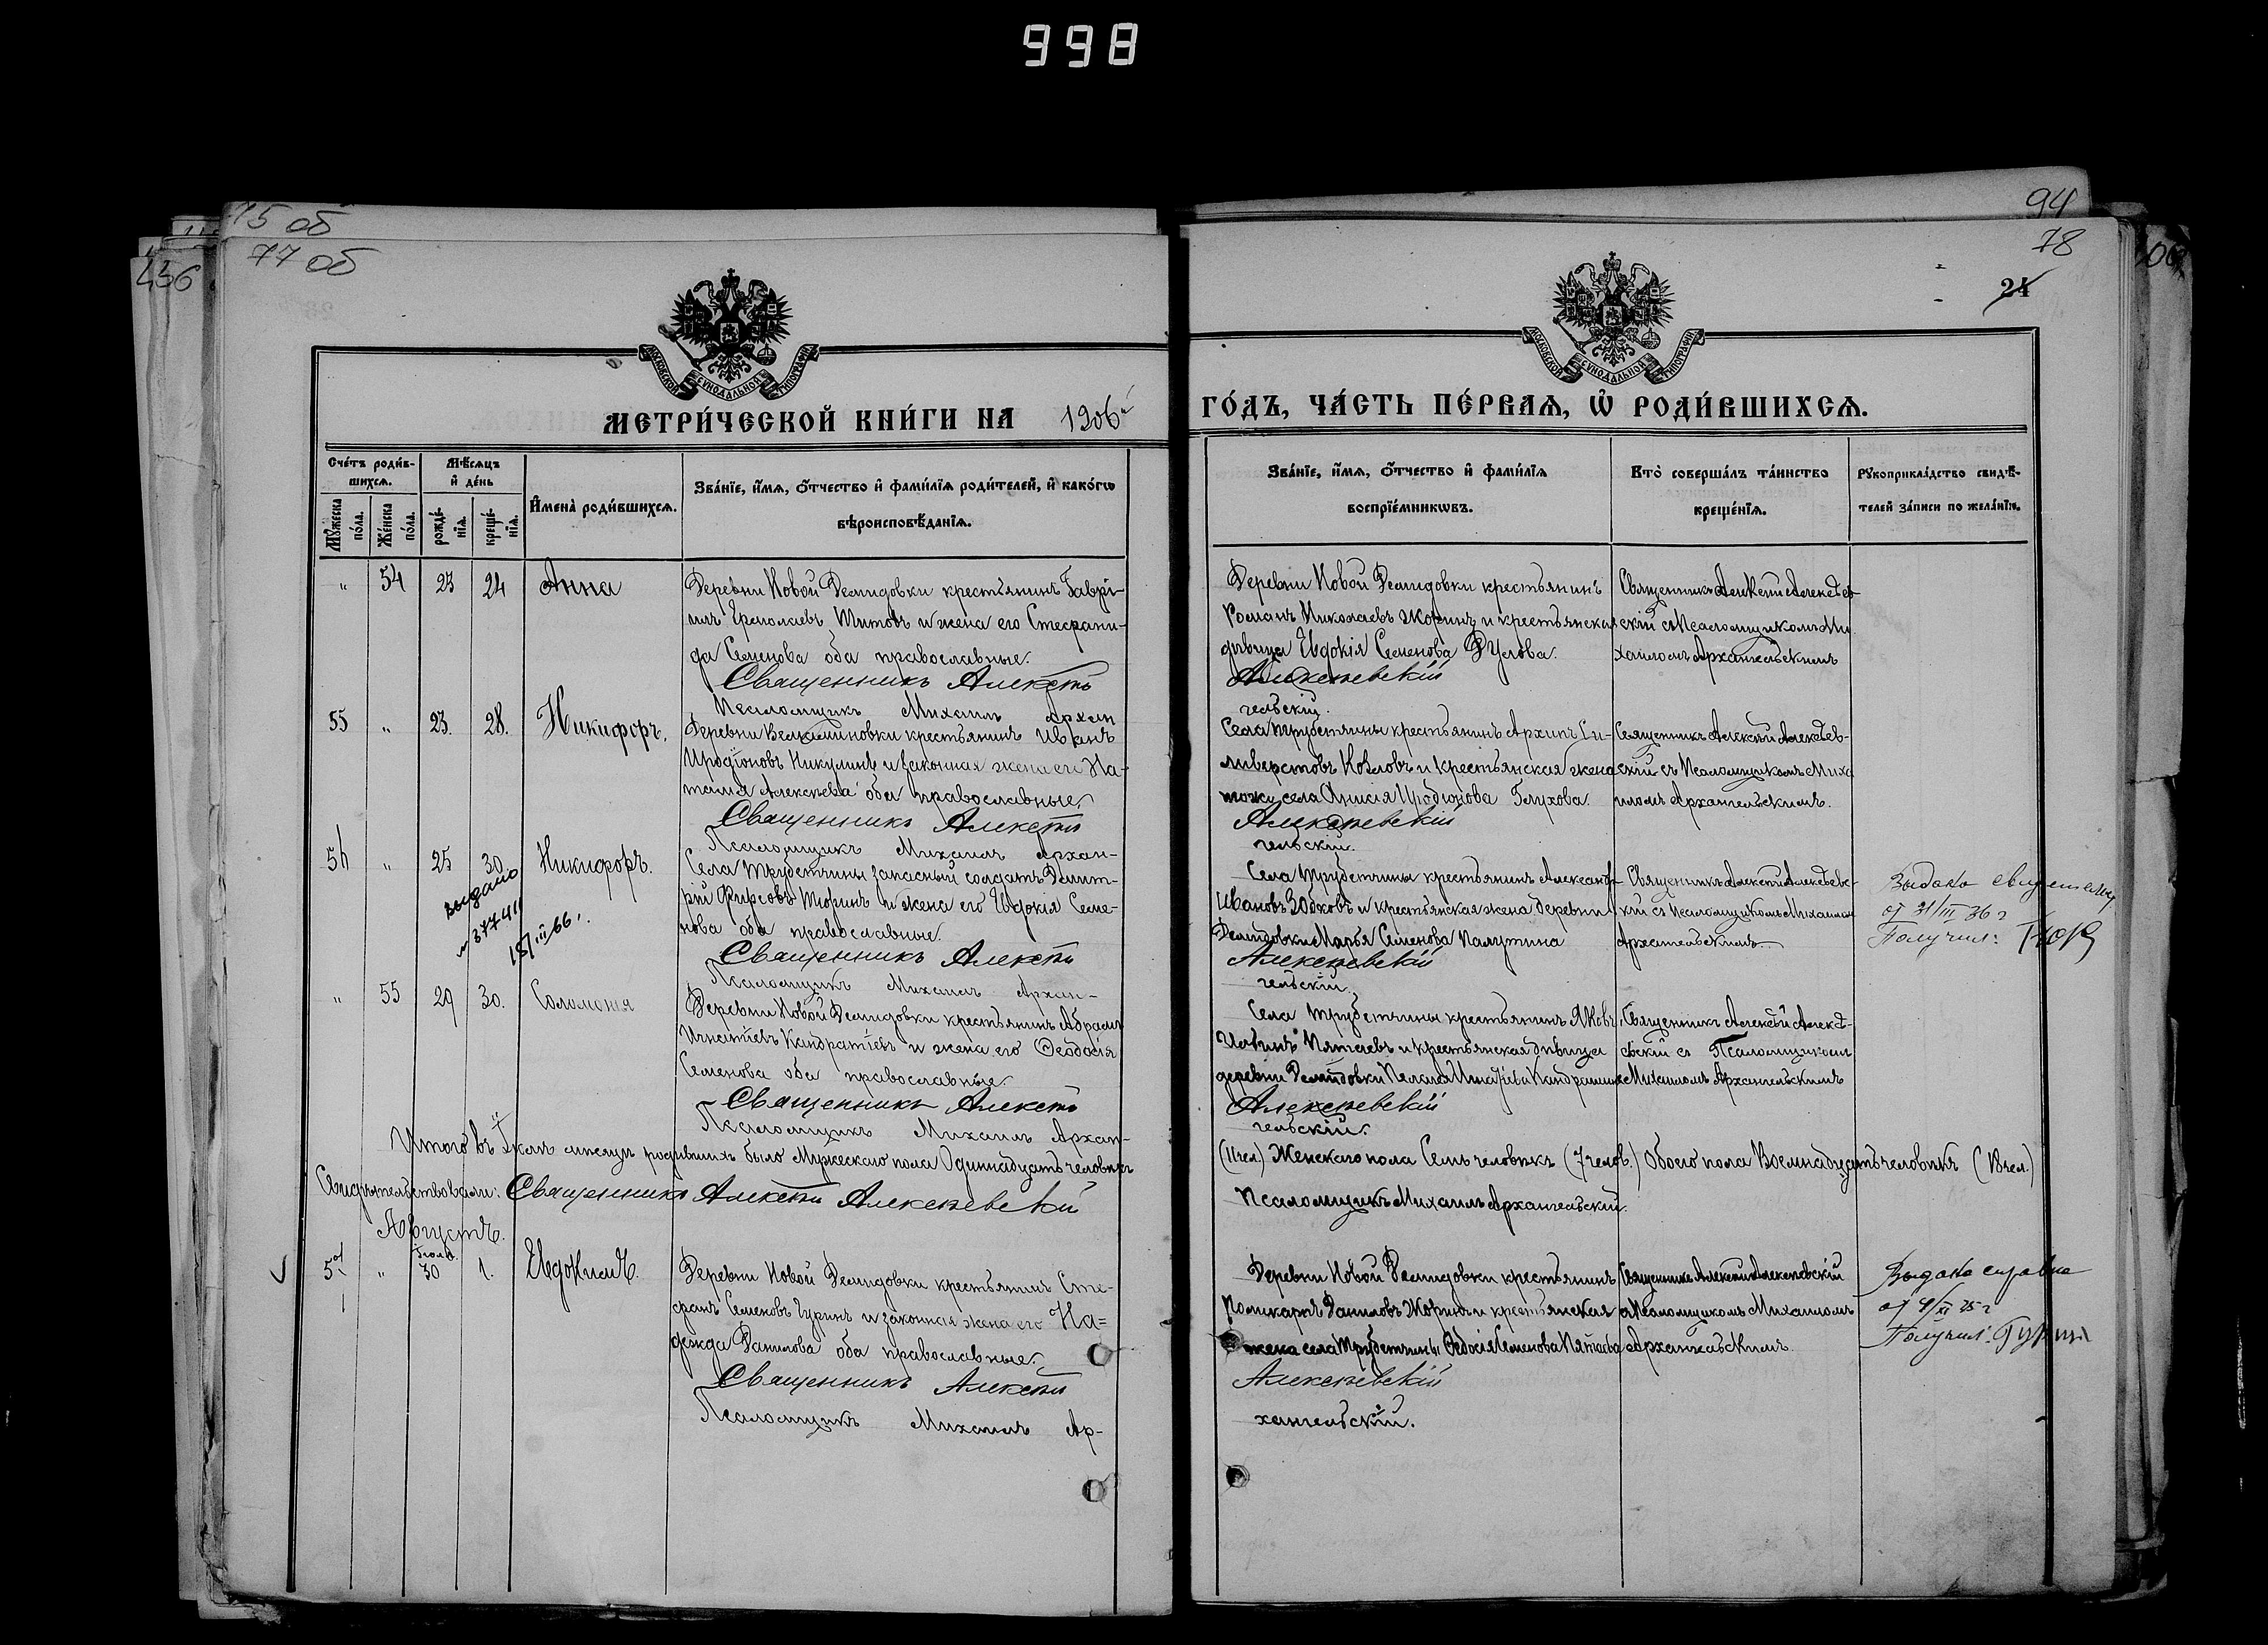 998
75 об
77 об
136
94
78
24
МОСКОВСКОЙ СУНОДАЛЬНОЙ ТИПОГРАФІИ
МОСКОВСКОЙ СУНОДАЛЬНОЙ ТИПОГРАФІИ
МЕТРИ́ЧЕСКОЙ КНИ́ГИ НА 1906й
ГО́ДЪ, ЧА́СТЬ ПЕ́РВАѦ, Ѡ҆ РОДИ́ВШИХСѦ.
Сче́тъ роди́в-
шихсѧ.
Мꙋжеска по́ла.
Же́нска по́ла.
Мѣ́сѧцъ
и҆ де́нь
рожде́нїѧ.
креще́нїѧ.
И҆мена̀ роди́вшихсѧ.
Зва́нїе, и҆́мѧ, ѻ҆́тчество и҆ фами́лїѧ роди́телей, и҆ како́гѡ
вѣроисповѣ́данїѧ.
Зва́нїе, и҆́мѧ, ѻ҆́тчество и҆ фами́лїѧ
воспрїе́мникѡвъ.
Кто̀ соверша́лъ та́инство
креще́нїѧ.
Рꙋкоприкла́дство свидѣ́-
телей за́писи по жела́нїю.
" 54 23 24 Анна
Деревни Новой Демидовки крестьянинъ Гаврі-
илъ Ермолаевъ Титовъ и жена его Стефани-
да Семенова оба православные.
Священникъ Алексѣй
Псаломщикъ Михаилъ Архан
Деревни Новой Демидовки крестьянинъ
Романъ Николаевъ Жоринъ и крестьянская
дѣвица Евдокія Семенова
Алексѣевскій
гельскій.
Священникъ Алексѣй Алексѣев-
скій съ Псаломщикомъ Ми
хаиломъ Архангельскимъ
55 " 23. 28. Никифоръ.
Деревни крестьянинъ Иванъ
Иродіоновъ Никулинъ и законная жена его На-
талія Алексѣева оба православные.
Священникъ Алексѣй
Псаломщикъ Михаилъ Архан-
Села Трубетчины крестьянинъ Архипъ Си-
ливерстовъ Козловъ и крестьянская жена
тожъ села Анисія Иродіонова Глухова.
Алексѣевскій
гельскій.
Священникъ Алексѣй Алексѣев-
скій съ Псаломщикомъ Миха
иломъ Архангельскимъ.
56 " 25 30. Никифоръ.
выдано
№ 37741
18/III 66 г.
Села Трубетчины запасный солдатъ Димит-
рій Фирсовъ Тюринъ и жена его Евдокія Семе-
нова оба православные.
Священникъ Алексѣй
Псаломщикъ Михаилъ Архан-
Села Трубетчины крестьянинъ Александръ
Ивановъ Зобковъ и крестьянская жена деревни
Демидовки Марья Семенова Палутина
Алексѣевскій
гельскій.
Священникъ Алексѣй Алексѣевс-
кій съ Псаломщикомъ Михаиломъ
Архангельскимъ.
Выдано
от 31/III 36 г
Получил: Тюр
" 55 29 30. Соломонія
Деревни Новой Демидовки крестьянинъ Абрамъ
Игнатіевъ Кандратіевъ и жена его Ѳеодосія
Семенова оба православные.
Священникъ Алексѣй
Псаломщикъ Михаилъ Архан-
Села Трубетчины крестьянинъ Яковъ
Пятаевъ и крестьянская дѣвица
деревни Демидовки Пелагія
Алексѣевскій
гельскій.
Священникъ Алексѣй Алексѣ-
евскій съ Псаломщикомъ
Михаиломъ Архангельскимъ
Итого въ Іюлѣ мѣсяцѣ родившихъ было Мужескаго пола Одиннадцать человѣкъ
(11 чел.) Женскаго пола Семь человѣкъ (7 челов.) Обоего пола Восемнадцать человѣкъ (18 чел.)
Свидѣтельствовали: Священникъ Алексѣй Алексѣевскій
Псаломщикъ Михаилъ Архангельскій.
Августъ.
Іюля.
57 " 30 1. Евдокимъ.
Деревни Новой Демидовки крестьянинъ Сте-
фанъ Семеновъ Гуринъ и законная жена его На=
дежда Данилова оба православные.
Священникъ Алексѣй
Псаломщикъ Михаилъ Ар-
Деревни Новой Демидовки крестьянинъ
Поликарпъ Даниловъ Жоринъ и крестьянская
жена села Трубетчины Ѳедосія Семенова Пятаева
Алексѣевскій
хангельскій.
Священникъ Алексѣй Алексѣевскій
съ Псаломщикомъ Михаиломъ
Архангельскимъ.
Выдана справка
от 4/XI 35 г
Получил: Гурин